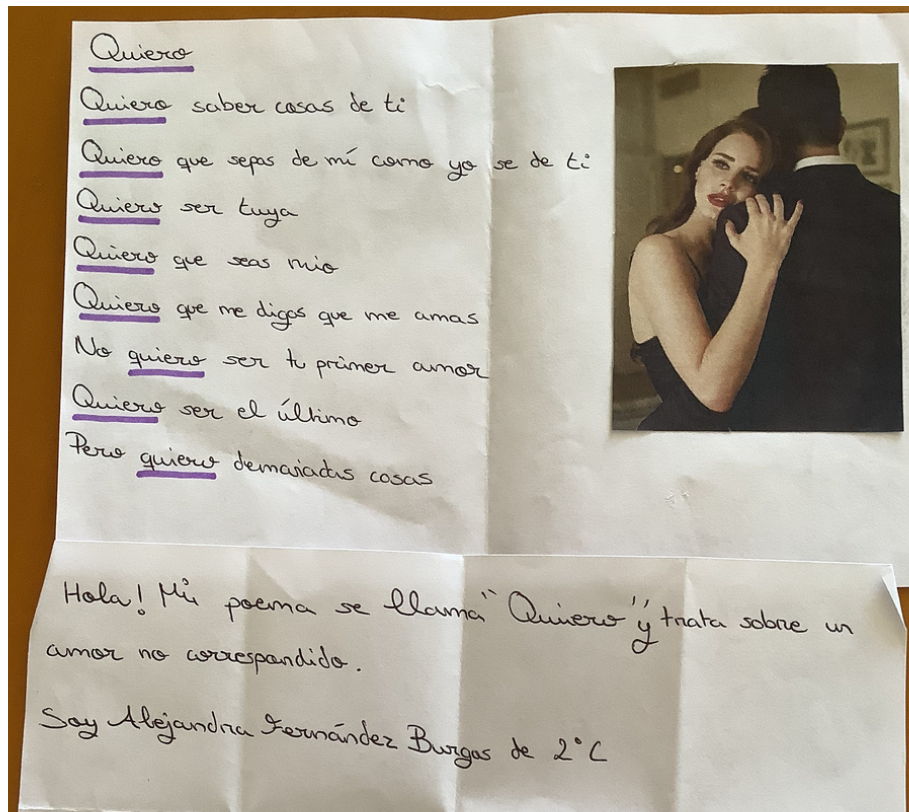 Quiero
Quiero saber cosas de ti
Quiero que sepas de mí como yo se de ti
Quiero ser tuya
Quiero que seas mio
Quiero que me digas que me amas
No quiero ser tu primer amor
Quiero ser el último
Pero quiero demasiadas cosas
Hola! Mi poema se llama "Quiero" y trata sobre un
amor no correspondido.
Soy Alejandra Fernández Burgos de 2°C